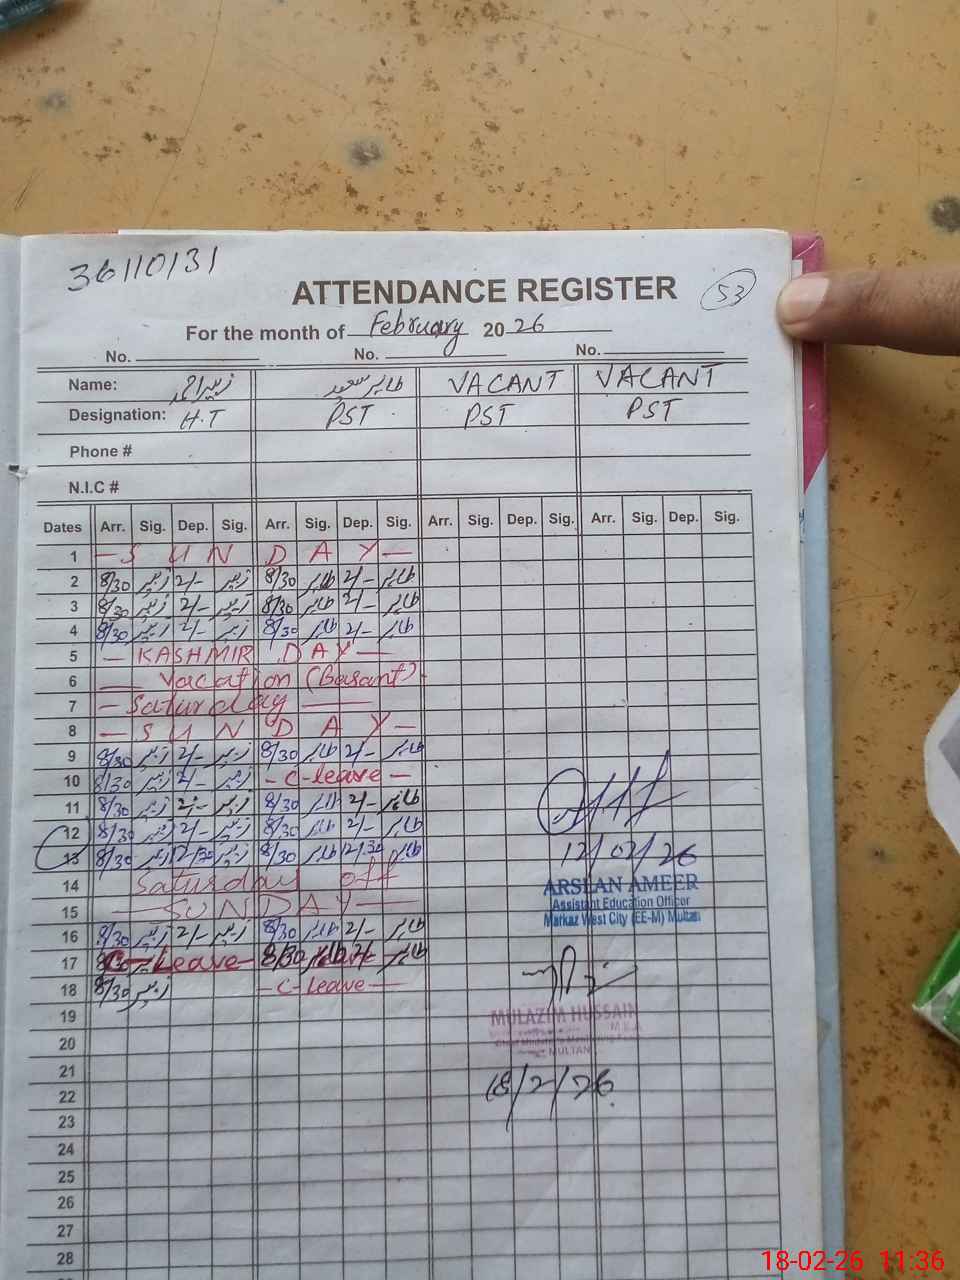 36110131
ATTENDANCE REGISTER
53
For the month of February 2026
No. No. No.
Name: زبیر احمد طاہر سعید VACANT VACANT
Designation: H.T PST PST PST
Phone #
N.I.C #
Dates Arr. Sig. Dep. Sig. Arr. Sig. Dep. Sig. Arr. Sig. Dep. Sig. Arr. Sig. Dep. Sig.
1 - S U N D A Y -
2 8/30 زبیر 2/- زبیر 8/30 طاہر 2/- طاہر
3 8/30 زبیر 2/- زبیر 8/30 طاہر 2/- طاہر
4 8/30 زبیر 2/- زبیر 8/30 طاہر 2/- طاہر
5 - KASHMIR DAY -
6 - Vacation (Basant) -
7 - Saturday -
8 - S U N D A Y -
9 8/30 زبیر 2/- زبیر 8/30 طاہر 2/- طاہر
10 8/30 زبیر 2/- زبیر - C-leave -
11 8/30 زبیر 2/- زبیر 8/30 طاہر 2/- طاہر
12 8/30 زبیر 2/- زبیر 8/30 طاہر 2/- طاہر
13 8/30 زبیر 12/30 زبیر 8/30 طاہر 12/30 طاہر
12/02/26
14 Saturday off
ARSLAN AMEER
Assistant Education Officer
Markaz West City (EE-M) Multan
15 - SUNDAY -
16 8/30 زبیر 2/- زبیر 8/30 طاہر 2/- طاہر
17 C-Leave - 8/30 طاہر 2/- طاہر
18 8/30 زبیر - C-leave -
19
MULAZIM HUSSAIN
M.E.A
20
MULTAN
21
18/2/26
22
23
24
25
26
27
28
18-02-26 11:36